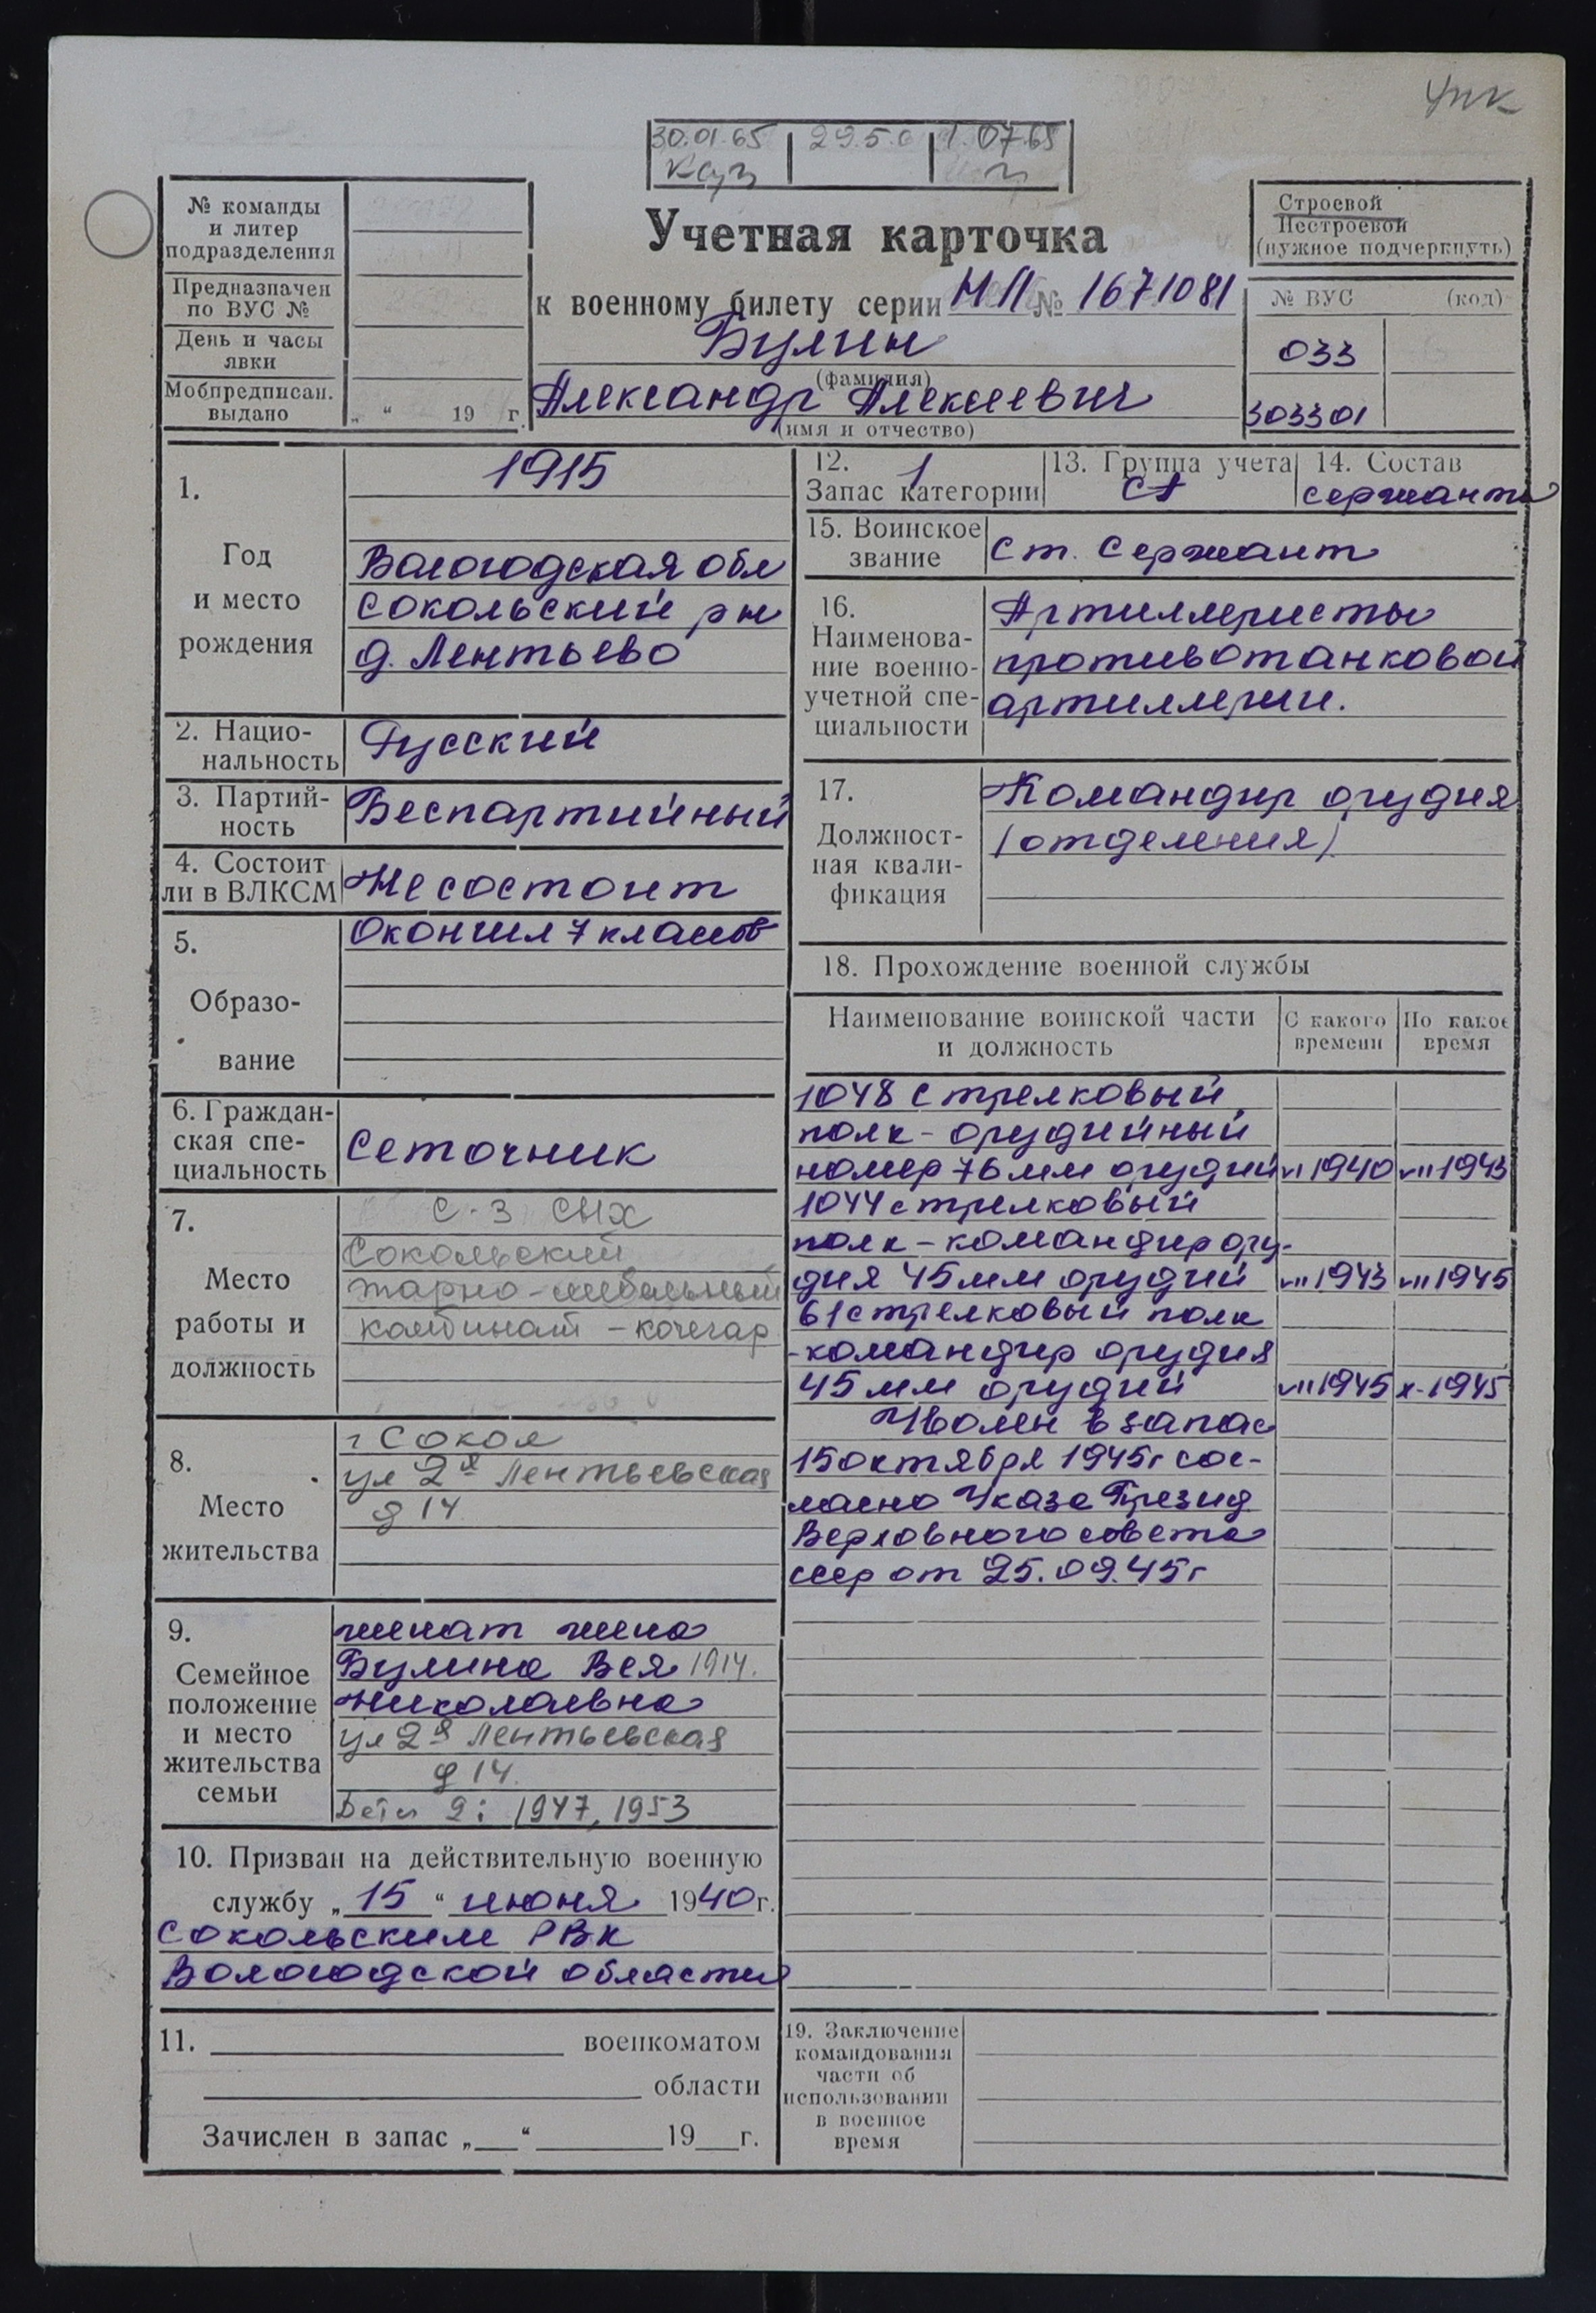 упк
30.01.65 29.5.6 1.07.68
№ команды
и литер
подразделения
Предназначен
по ВУС №
День и часы
явки
Мобпредписан.
выдано „ “ 19 г.
Учетная карточка
к военному билету серии НП № 1671081
Булин
(фамилия)
Александр Алексеевич
(имя и отчество)
Строевой
Нестроевой
(нужное подчеркнуть)
№ ВУС (код)
033
303301
1.
Год
и место
рождения
1915
Вологодская обл
Сокольский р н
д. Лентьево
2. Нацио-
нальность
Русский
3. Партий-
ность
Беспартийный
4. Состоит
ли в ВЛКСМ
Не состоит
5.
Образо-
вание
Окончил 7 классов
6. Граждан-
ская спе-
циальность
Сеточник
7.
Место
работы и
должность
с-з СЫХ
Сокольский
тарно-мебельный
комбинат - кочегар
8.
Место
жительства
г Сокол
ул 2я Лентьевская
д 14
9.
Семейное
положение
и место
жительства
семьи
женат жена
Булина Вея 1914.
Николаевна
ул 2я Лентьевская
д 14.
Дети 2: 1947, 1953
10. Призван на действительную военную
службу „15“ июня 1940 г.
Сокольским РВК
Вологодской области
11. военкоматом
области
Зачислен в запас „ “ 19 г.
12. 1
Запас категории
13. Группа учета
СА
14. Состав
сержанты
15. Воинское
звание
Ст. Сержант
16.
Наименова-
ние военно-
учетной спе-
циальности
Артиллеристы
противотанковой
артиллерии.
17.
Должност-
ная квали-
фикация
Командир орудия
(отделения)
18. Прохождение военной службы
Наименование воинской части
и должность
С какого
времени
По какое
время
1048 стрелковый
полк - орудийный
номер 76 мм орудий VI 1940 VII 1943
1044 стрелковый
полк - командир ору-
дия 45 мм орудий VII 1943 VII 1945
61 стрелковый полк
- командир орудия
45 мм орудий VII 1945 X-1945
Уволен в запас
15 октября 1945г сог-
ласно Указа Презид
Верховного совета
ссср от 25.09.45г
19. Заключение
командования
части об
использовании
в военное
время